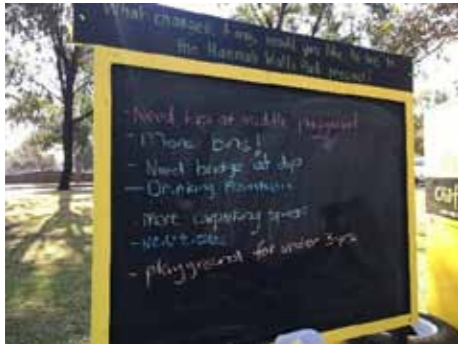 What changes, if any, would you like to see to
the Hannah Watts Park precinct?
- Need at middle playground
- More bins!
- Need bridge at dip
- Drinking Fountain
- More carparking spaces
- playground for under 3yrs